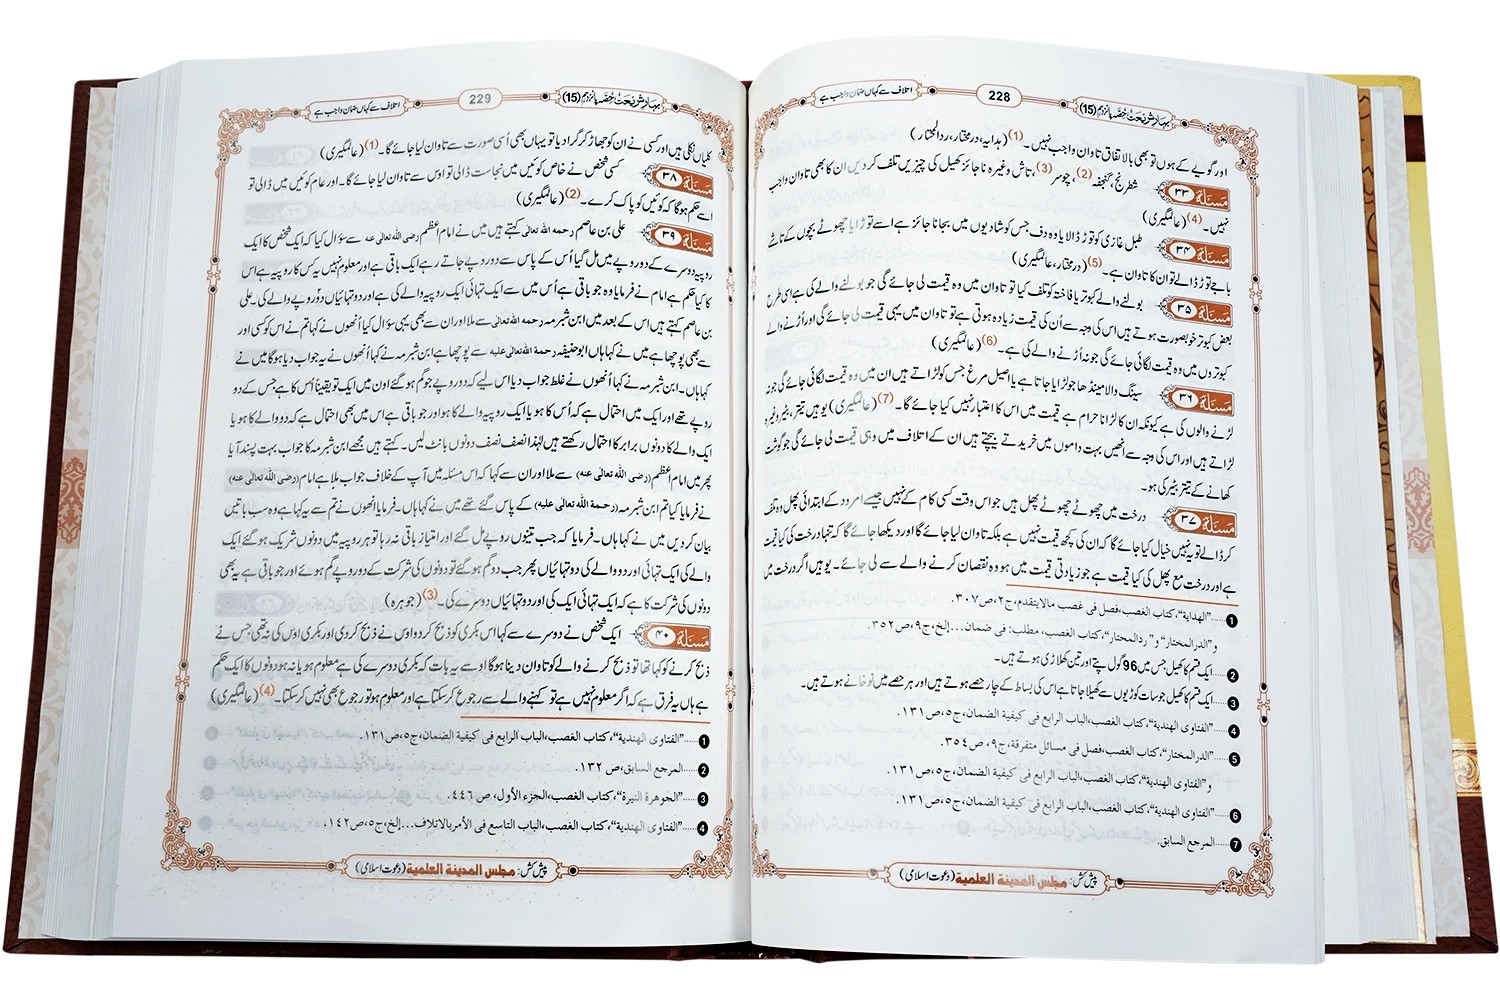 بہار شریعت حصّہ پانزدہم (15)
228
اتلاف سے کہاں ضمان واجب ہے
اور گویے کے ہوں تو بھی بالاتفاق تاوان واجب نہیں۔(1) (ہدایہ، درمختار، ردالمحتار)
مسئلہ ۳۳ شطرنج، گنجفہ(2)، چوسر(3)، تاش وغیرہ ناجائز کھیل کی چیزیں تلف کردیں ان کا بھی تاوان واجب
نہیں۔(4) (عالمگیری)
مسئلہ ۳۴ طبل غازی کو توڑ ڈالا یا وہ دف جس کو شادیوں میں بجانا جائز ہے اسے توڑا یا چھوٹے بچوں کے تاشے
باجے توڑ ڈالے تو ان کا تاوان ہے۔(5) (درمختار، عالمگیری)
مسئلہ ۳۵ بولنے والے کبوتر یا فاختہ کو تلف کیا تو تاوان میں وہ قیمت لی جائے گی جو بولنے والے کی ہے اسی طرح
بعض کبوتر خوبصورت ہوتے ہیں اس کی وجہ سے اُن کی قیمت زیادہ ہوتی ہے تو تاوان میں یہی قیمت لی جائے گی اور اُڑنے والے
کبوتروں میں وہ قیمت لگائی جائے گی جو نہ اُڑنے والے کی ہے۔(6) (عالمگیری)
مسئلہ ۳۶ سینگ والا مینڈھا جو لڑایا جاتا ہے یا اصیل مرغ جس کو لڑاتے ہیں ان میں وہ قیمت لگائی جائے گی جو نہ
لڑنے والوں کی ہے کیونکہ ان کا لڑانا حرام ہے قیمت میں اس کا اعتبار نہیں کیا جائے گا۔(7) (عالمگیری) یوہیں تیتر، بٹیر وغیرہ
لڑاتے ہیں اور اس کی وجہ سے اُنھیں بہت داموں میں خریدتے بیچتے ہیں ان کے اتلاف میں وہی قیمت لی جائے گی جو گوشت
کھانے کے تیتر بٹیر کی ہو۔
مسئلہ ۳۷ درخت میں چھوٹے چھوٹے پھل ہیں جو اس وقت کسی کام کے نہیں جیسے امرود کے ابتدائی پھل وہ تلف
کر ڈالے تو یہ نہیں خیال کیا جائے گا کہ ان کی کچھ قیمت نہیں ہے بلکہ تاوان لیا جائے گا اور دیکھا جائے گا کہ تنہا درخت کی کیا قیمت
ہے اور درخت مع پھل کی کیا قیمت ہے جو زیادتی قیمت میں ہو وہ نقصان کرنے والے سے لی جائے۔ یوہیں اگر درخت میں
1......"الهداية"، كتاب الغصب، فصل في غصب مالا يتقدم، ج٢، ص٣٠٧.
و"الدرالمختار" و"ردالمحتار"، كتاب الغصب، مطلب: في ضمان...إلخ، ج٩، ص٣٥٢.
2......ایک قسم کا کھیل جس میں 96 گول پتے اور تین کھلاڑی ہوتے ہیں۔
3......ایک قسم کا کھیل جو سات کوڑیوں سے کھیلا جاتا ہے اس کی بساط کے چار حصے ہوتے ہیں اور ہر حصے میں نو خانے ہوتے ہیں۔
4......"الفتاوى الهندية"، كتاب الغصب، الباب الرابع في كيفية الضمان، ج٥، ص١٣١.
5......"الدرالمختار"، كتاب الغصب، فصل في مسائل متفرقة، ج٩، ص٣٥٤.
و"الفتاوى الهندية"، كتاب الغصب، الباب الرابع في كيفية الضمان، ج٥، ص١٣١.
6......"الفتاوى الهندية"، كتاب الغصب، الباب الرابع في كيفية الضمان، ج٥، ص١٣١.
7......المرجع السابق.
پیش کش: مجلس المدینۃ العلمیۃ (دعوت اسلامی)
بہار شریعت حصّہ پانزدہم (15)
229
اتلاف سے کہاں ضمان واجب ہے
کلیاں نکلی ہیں اور کسی نے ان کو جھاڑ کر گرا دیا تو یہاں بھی اُسی صورت سے تاوان لیا جائے گا۔(1) (عالمگیری)
مسئلہ ۳۸ کسی شخص نے خاص کوئیں میں نجاست ڈالی تو اوس سے تاوان لیا جائے گا۔ اور عام کوئیں میں ڈالی تو
اسے حکم ہوگا کہ کوئیں کو پاک کرے۔(2) (عالمگیری)
مسئلہ ۳۹ علی بن عاصم رحمۃ اللہ تعالیٰ کہتے ہیں میں نے امام اعظم رضی اللہ تعالیٰ عنہ سے سوال کیا کہ ایک شخص کا ایک
روپیہ دوسرے کے دو روپے میں مل گیا اُس کے پاس سے دو روپے جاتے رہے ایک باقی ہے اور معلوم نہیں یہ کس کا روپیہ ہے اس
کا کیا حکم ہے امام نے فرمایا وہ جو باقی ہے اُس میں سے ایک تہائی ایک روپیہ والے کی ہے اور دو تہائیاں دو روپے والے کی۔ علی
بن عاصم کہتے ہیں اس کے بعد میں ابن شبرمہ رحمۃ اللہ تعالیٰ سے ملا اور ان سے بھی یہی سوال کیا اُنھوں نے کہا تم نے اس کو کسی اور
سے بھی پوچھا ہے میں نے کہا ہاں ابوحنیفہ رحمۃ اللہ تعالیٰ علیہ سے پوچھا ہے ابن شبرمہ نے کہا اُنھوں نے یہ جواب دیا ہوگا میں نے
کہا ہاں۔ ابن شبرمہ نے کہا اُنھوں نے غلط جواب دیا اس لیے کہ دو روپے جو گم ہوگئے اون میں ایک تو یقیناً اُس کا ہے جس کے دو
روپے تھے اور ایک میں احتمال ہے کہ اُس کا ہو یا ایک روپیہ والے کا ہو اور جو باقی ہے اس میں بھی احتمال ہے کہ دو والے کا ہو یا
ایک والے کا دونوں برابر کا احتمال رکھتے ہیں لہٰذا نصف نصف دونوں بانٹ لیں۔ کہتے ہیں مجھے ابن شبرمہ کا جواب بہت پسند آیا
پھر میں امام اعظم (رضی اللہ تعالیٰ عنہ) سے ملا اور ان سے کہا کہ اس مسئلہ میں آپ کے خلاف جواب ملا ہے امام (رضی اللہ تعالیٰ عنہ)
نے فرمایا کیا تم ابن شبرمہ (رحمۃ اللہ تعالیٰ علیہ) کے پاس گئے تھے میں نے کہا ہاں۔ فرمایا انھوں نے تم سے یہ کہا ہے وہ سب باتیں
بیان کردیں میں نے کہا ہاں۔ فرمایا کہ جب تینوں روپے مل گئے اور امتیاز باقی نہ رہا تو ہر روپیہ میں دونوں شریک ہوگئے ایک
والے کی ایک تہائی اور دو والے کی دو تہائیاں پھر جب دو گم ہوگئے تو دونوں کی شرکت کے دو روپے گم ہوئے اور جو باقی ہے یہ بھی
دونوں کی شرکت کا ہے کہ ایک تہائی ایک کی اور دو تہائیاں دوسرے کی۔(3) (جوہرہ)
مسئلہ ۴۰ ایک شخص نے دوسرے سے کہا اس بکری کو ذبح کردو اوس نے ذبح کردی اور بکری اوس کی نہ تھی جس نے
ذبح کرنے کو کہا تھا تو ذبح کرنے والے کو تاوان دینا ہوگا اوسے یہ بات کہ بکری دوسرے کی ہے معلوم ہو یا نہ ہو دونوں کا ایک حکم
ہے ہاں یہ فرق ہے کہ اگر معلوم نہیں ہے تو کہنے والے سے رجوع کرسکتا ہے اور معلوم ہو تو رجوع بھی نہیں کرسکتا۔(4) (عالمگیری)
1......"الفتاوى الهندية"، كتاب الغصب، الباب الرابع في كيفية الضمان، ج٥، ص١٣١.
2......المرجع السابق، ص١٣٢.
3......"الجوهرة النيرة"، كتاب الغصب، الجزء الأول، ص٤٤٦.
4......"الفتاوى الهندية"، كتاب الغصب، الباب التاسع في الأمر بالاتلاف...إلخ، ج٥، ص١٤٢.
پیش کش: مجلس المدینۃ العلمیۃ (دعوت اسلامی)